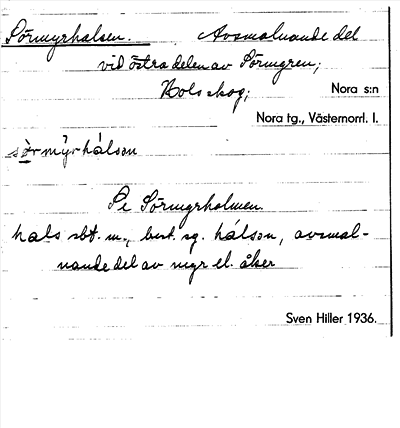 Sörmyrhalsen. Avsmalnande del
vid östra delen av Sörmyren;
Hols skog; Nora s:n
Nora tg., Västernorrl. l.
sø̀rmỳrhálsən
Se Sörmyrholmen.
hals sbt. m., best. sg. hálsən, avsmal-
nande del av myr el. åker
Sven Hiller 1936.